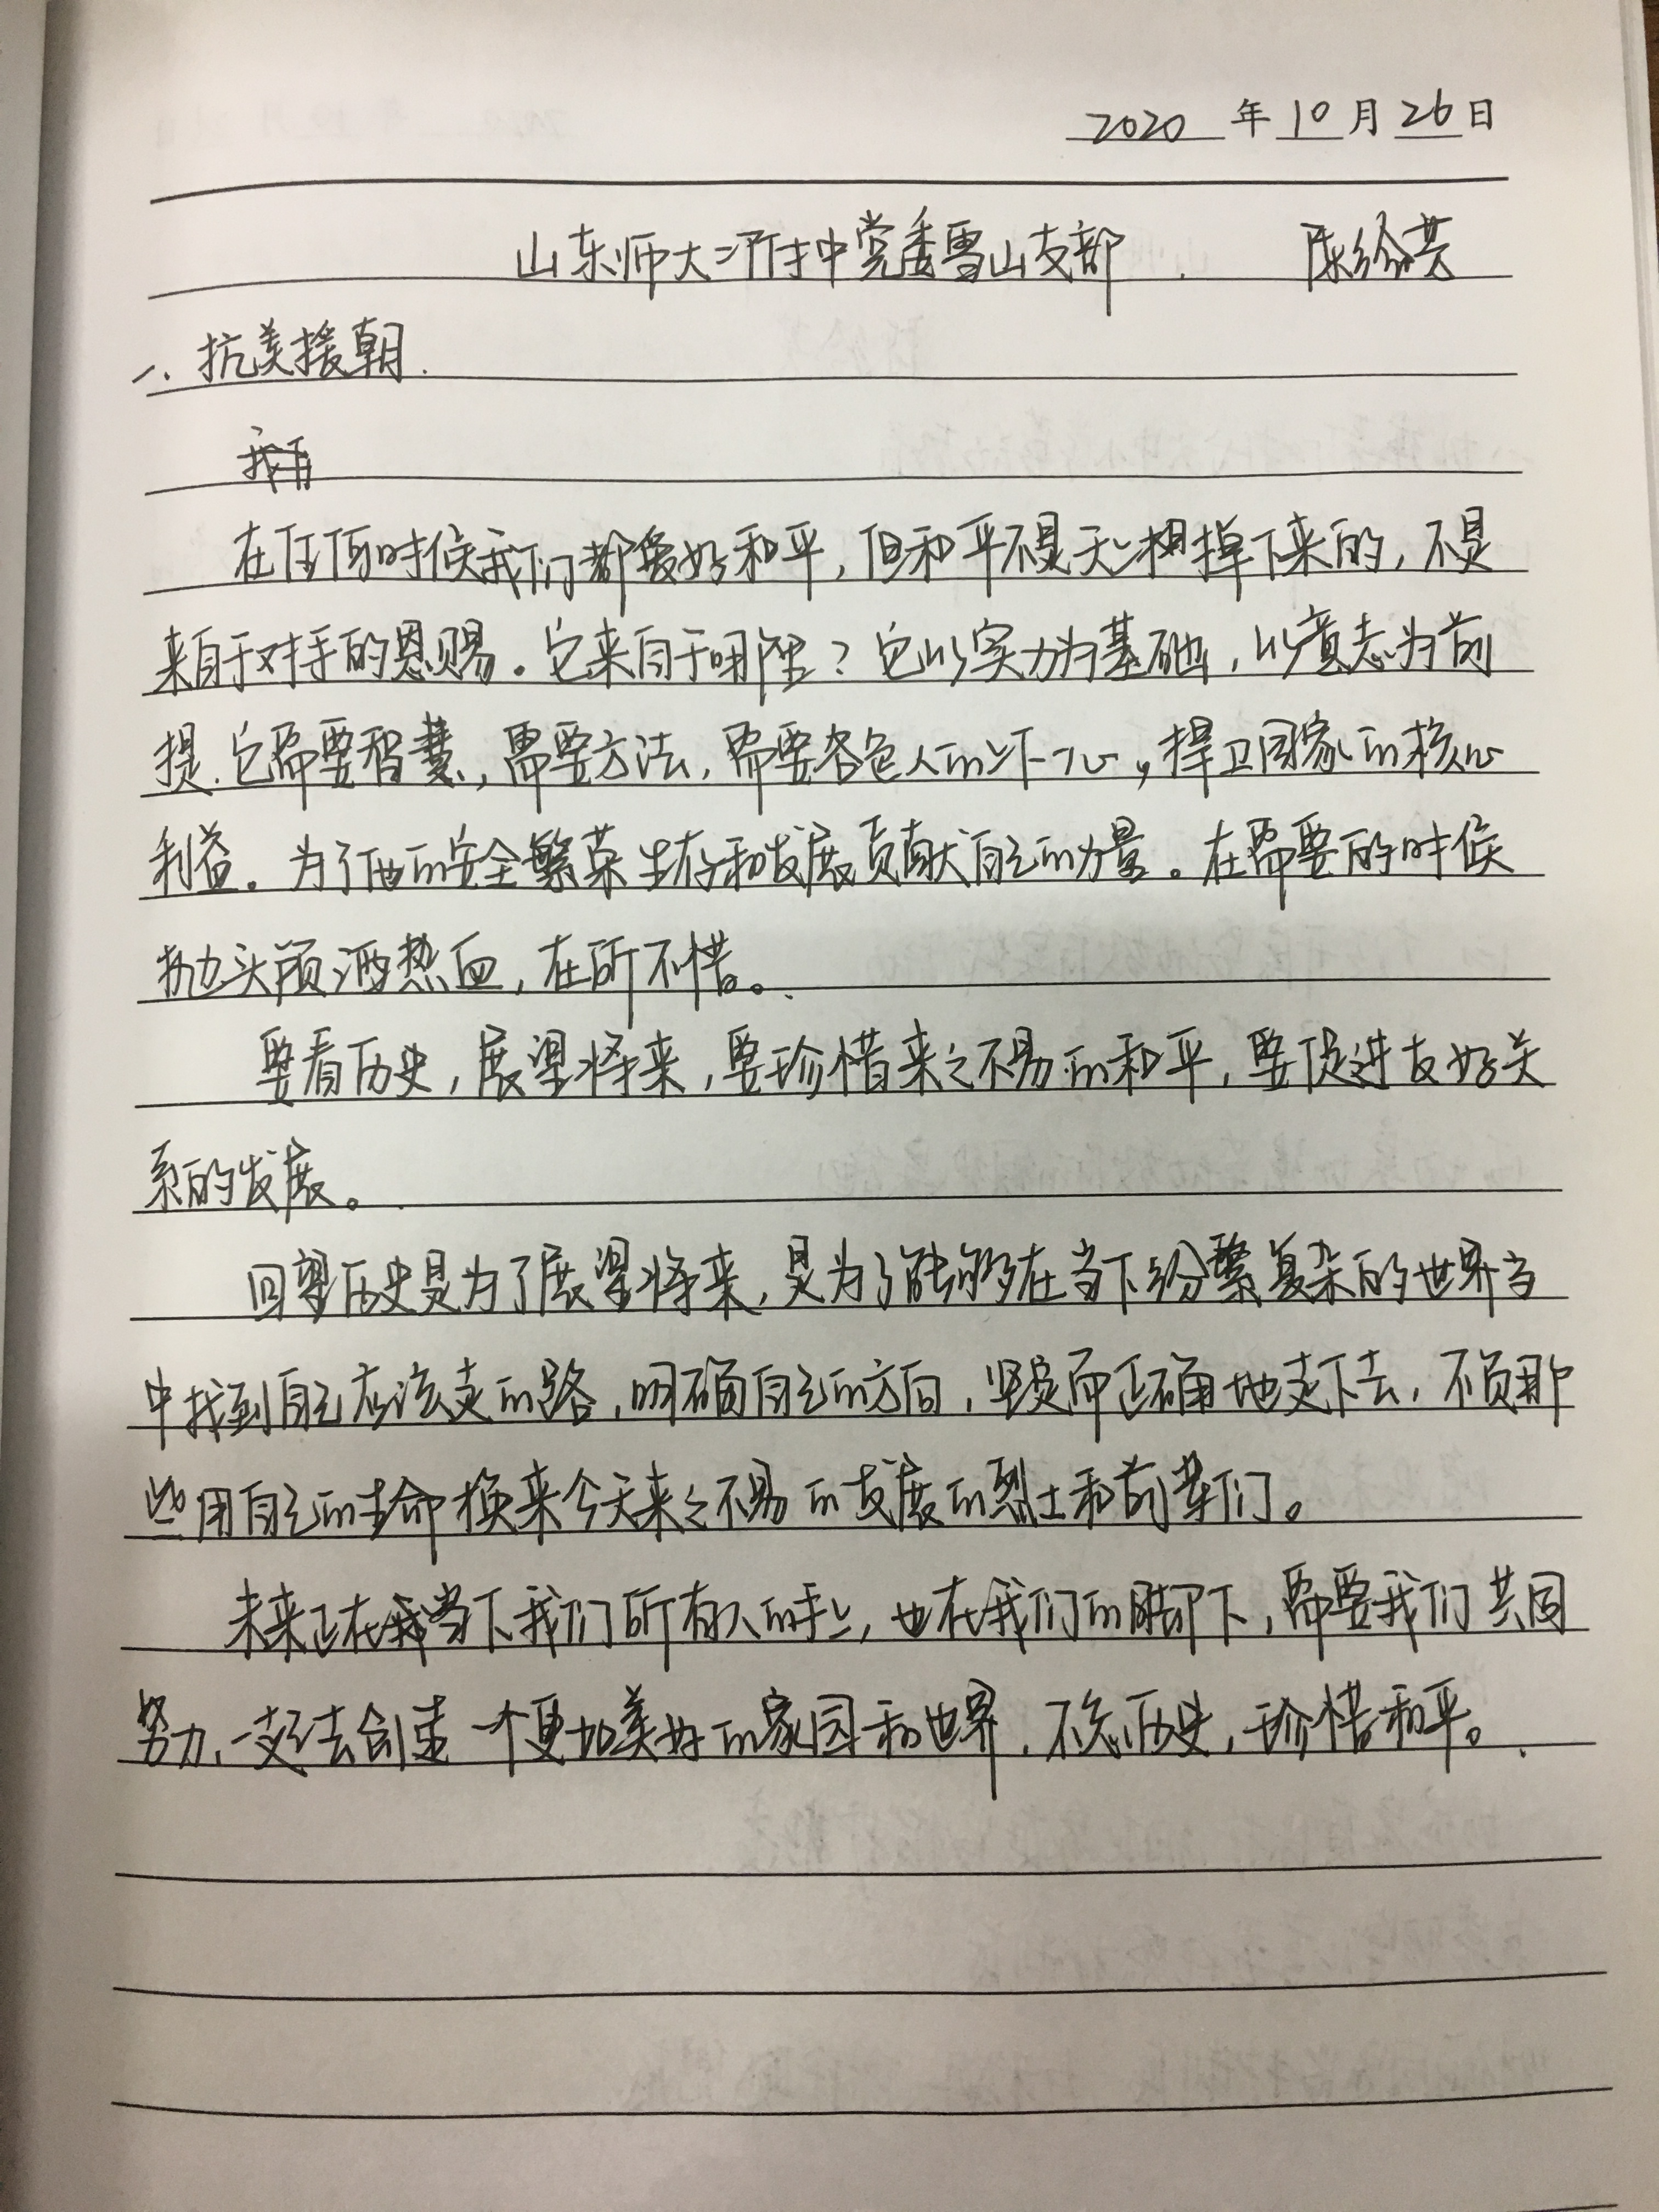 2020 年 10 月 26 日
山东师大附中党委雪山支部 陈绘芸
一. 抗美援朝.
在任何时候我们都爱好和平，但和平不是天上掉下来的，不是
来自于对手的恩赐。它来自于哪里？它以实力为基础，以意志为前
提.它需要智慧，需要方法，需要各色人的上下一心，捍卫国家的核心
利益。为了他的安全繁荣生存和发展贡献自己的力量。在需要的时候
抛头颅洒热血，在所不惜。
要看历史，展望将来，要珍惜来之不易的和平，要促进友好关
系的发展。
回望历史是为了展望将来，是为了能够在当下纷繁复杂的世界当
中找到自己应该走的路，明确自己的方向，坚定而正确地走下去，不负那
些用自己的生命换来今天来之不易的发展的烈士和前辈们。
未来正在当下我们所有人的手上，也在我们的脚下，需要我们共同
努力，一起去创造一个更加美好的家园和世界，不忘历史，珍惜和平。